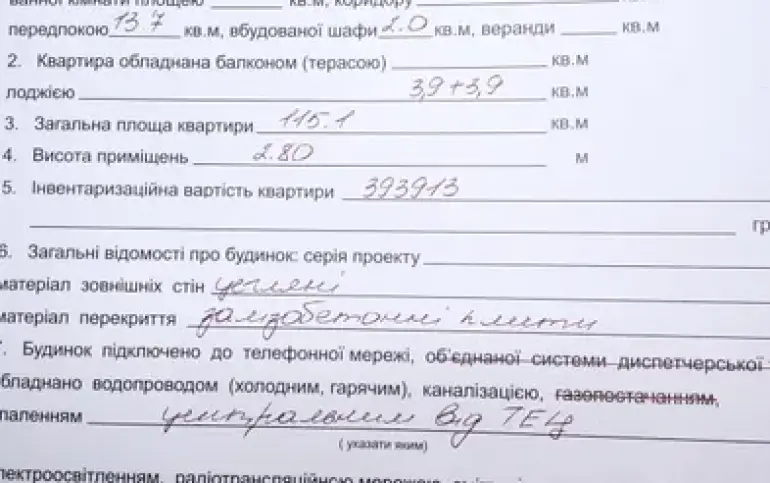 ванної кімнати площею ______ кв.м, коридору
передпокою 13 7 кв.м, вбудованої шафи 2.0 кв.м, веранди ____ кв.м
2. Квартира обладнана балконом (терасою) ______ кв.м
лоджією 3,9+3,9 кв.м
3. Загальна площа квартири 115.1 кв.м
4. Висота приміщень 2.80 м
5. Інвентаризаційна вартість квартири 393913
гр
6. Загальні відомості про будинок: серія проекту ______
матеріал зовнішніх стін цегляні
матеріал перекриття залізобетонні плити
7. Будинок підключено до телефонної мережі, об'єднаної системи диспетчерської
обладнано водопроводом (холодним, гарячим), каналізацією, газопостачанням,
паленням центральним від ТЕЦ
( указати яким)
лектроосвітленням, радіотрансляційною мережею,